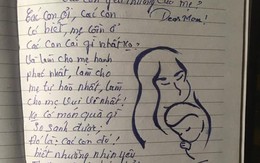 yêu thương của mẹ?
Dear Mom!
Các con ơi, các con
có biết, mẹ cần ở
các con cái gì nhất ko?
Và làm cho mẹ hạnh
phúc nhất, làm cho
mẹ tự hào nhất, làm
cho mẹ vui vẻ nhất!
Ko có món quà gì
so sánh được;
Đó là: các con đã!
biết nhường nhịn yêu